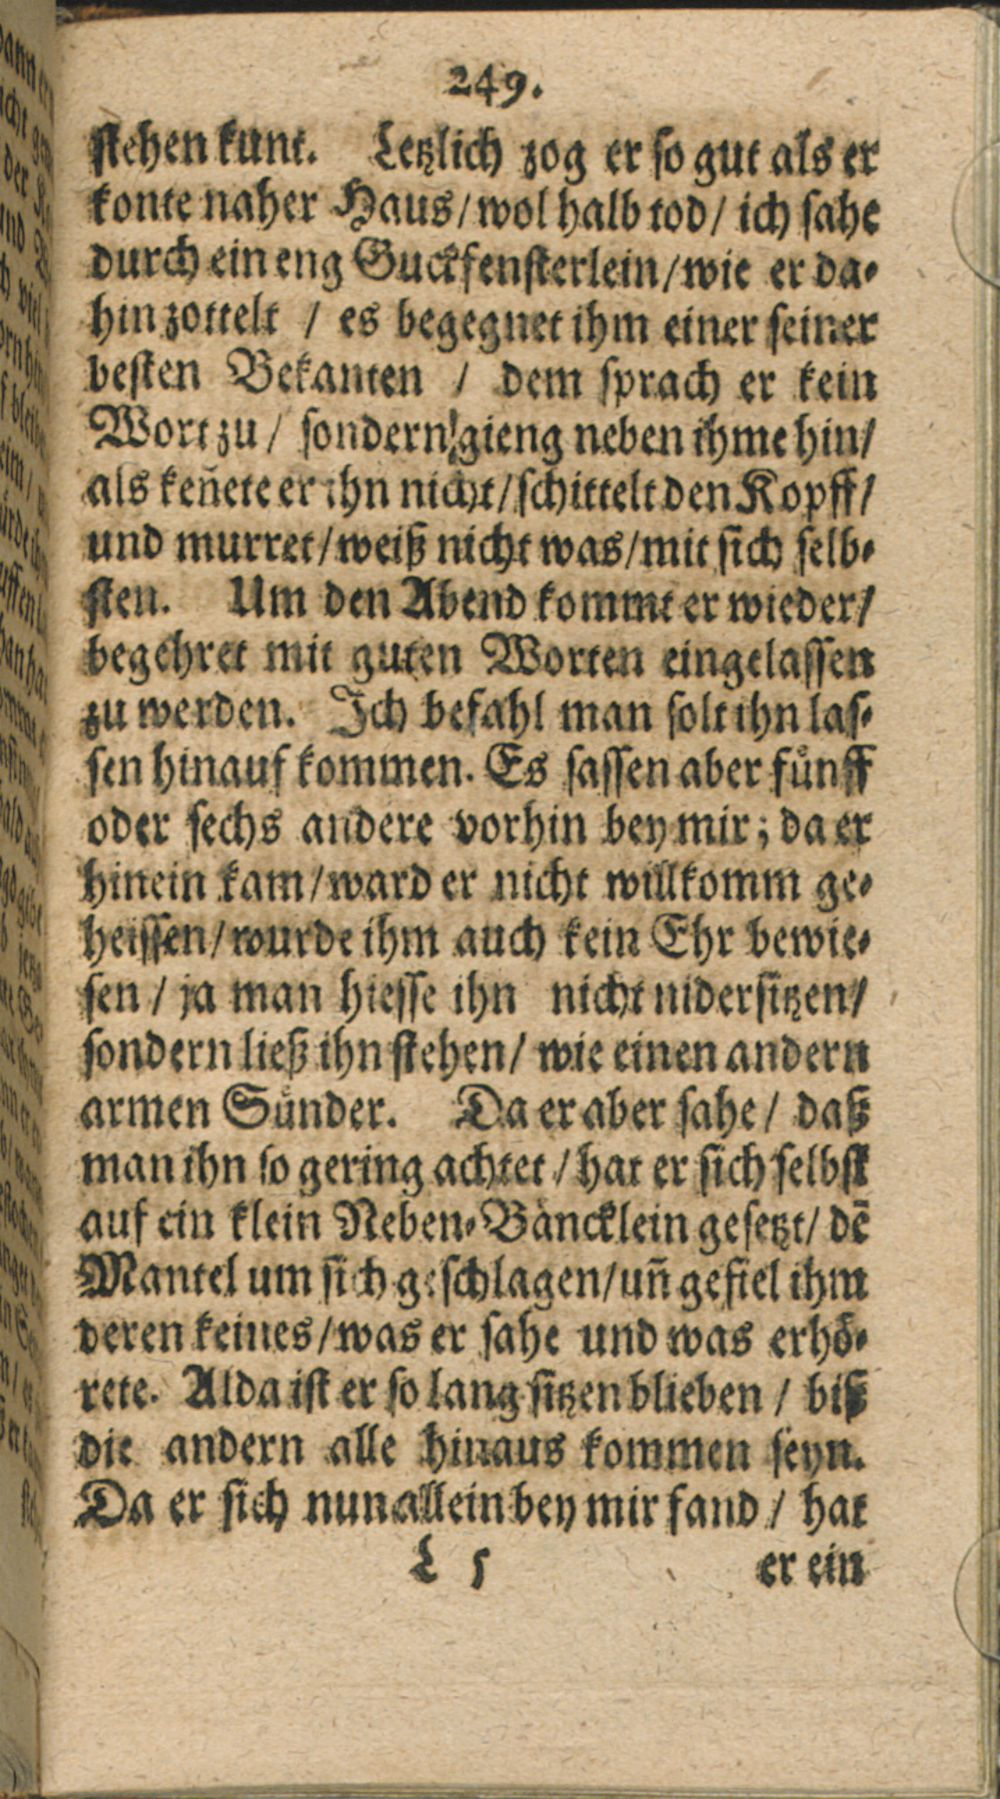 249.
stehen kunt. Letzlich zog er so gut als er
konte naher Haus/ wol halb tod/ ich sahe
durch ein eng Guckfensterlein/ wie er da-
hin zottelt / es begegnet ihm einer seiner
besten Bekanten / dem sprach er kein
Wort zu / sondern gieng neben ihme hin/
als keñete er ihn nicht/ schittelt den Kopff/
und murret/ weiß nicht was/ mit sich selb-
sten. Um den Abend kommt er wieder/
begehret mit guten Worten eingelassen
zu werden. Ich befahl man solt ihn las-
sen hinauf kommen. Es sassen aber fünff
oder sechs andere vorhin bey mir; da er
hinein kam/ ward er nicht willkomm ge-
heissen/ wurde ihm auch kein Ehr bewie-
sen / ja man hiesse ihn nicht nidersitzen/
sondern ließ ihn stehen/ wie einen andern
armen Sünder. Da er aber sahe/ daß
man ihn so gering achtet / hat er sich selbst
auf ein klein Neben-Bäncklein gesetzt/ dē
Mantel um sich geschlagen/ uñ gefiel ihm
deren keines/ was er sahe und was erhö-
rete. Alda ist er so lang sitzen blieben / biß
die andern alle hinaus kommen seyn.
Da er sich nun allein bey mir fand / hat
L 5 er ein